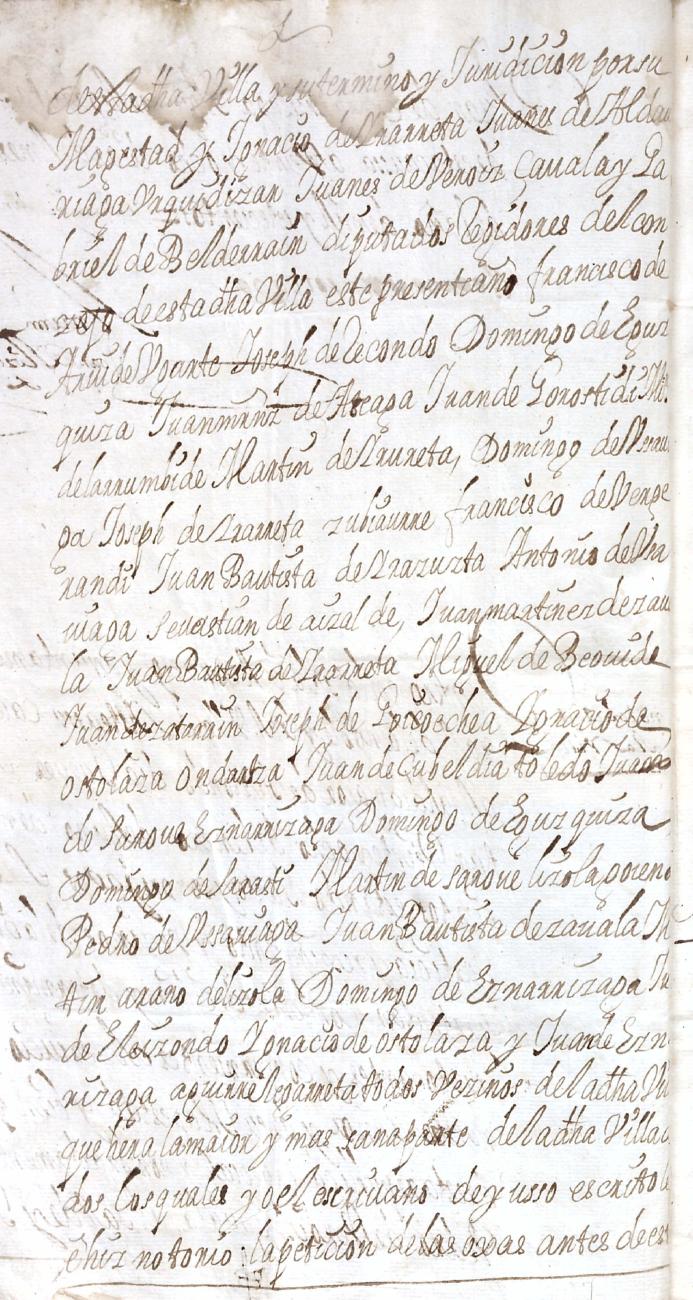 de esta dha Villa y su termino y Juridicion por su
Magestad y Ignacio de Ynarreta Juanes de Aldau
riaga Vrquidizar Juanes de Veroiz Çauala y Ga
briel de Belderrain diputados Regidores del con
de esta dha Villa este presente año francisco de
de Joseph de Recondo Domingo de Eguz
quiza Juan mrnz de Ateaga Juan de Gorostidi
de larrumbide Martin de Yrureta, Domingo de
ga Joseph de Ynarreta zubiaurre francisco de Verge
randi Juan Bautista de Yrazuzta Antonio de Vra
uiaga Seuastian de aizal de, Juan martinez de zau
la Juan Bautista de Ynarreta Miguel de Beouide
Juan de zatarain Joseph de Goicoechea Ygnacio de
ostolaza ondartza Juan de Cubeldia toledo Juan
de Saroue Eznarrizaga Domingo de Eguzquiza
Domingo de Sarasti Martin de saroue lizola goiena
Pedro de Vsarriaga Juan Bautista de zauala M
tin arano de lizola Domingo de Eznarrizaga Ju
de Elizondo Ygnacio de ostolaza y Juan de Ezn
rizaga aguirre legarreta todos Vezinos de la dha Vi
que hera la maior y mas sana parte de la dha Villa
dos los quales yo el escriuano de y usso escrito l
e hiz notorio la peticion de las ojas antes de es